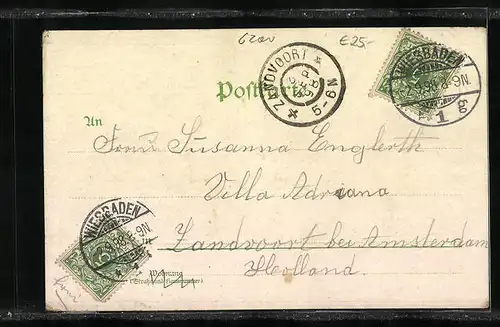 62av €25.-
Postkarte
ZANDVOORT
5-6N
WIESBADEN
1 g
An
Frau Susanna Englerth
Villa Adriana
Zandvoort bei Amsterdam
Holland.
WIESBADEN
in
Wohnung
(Strasse und Hausnummer)